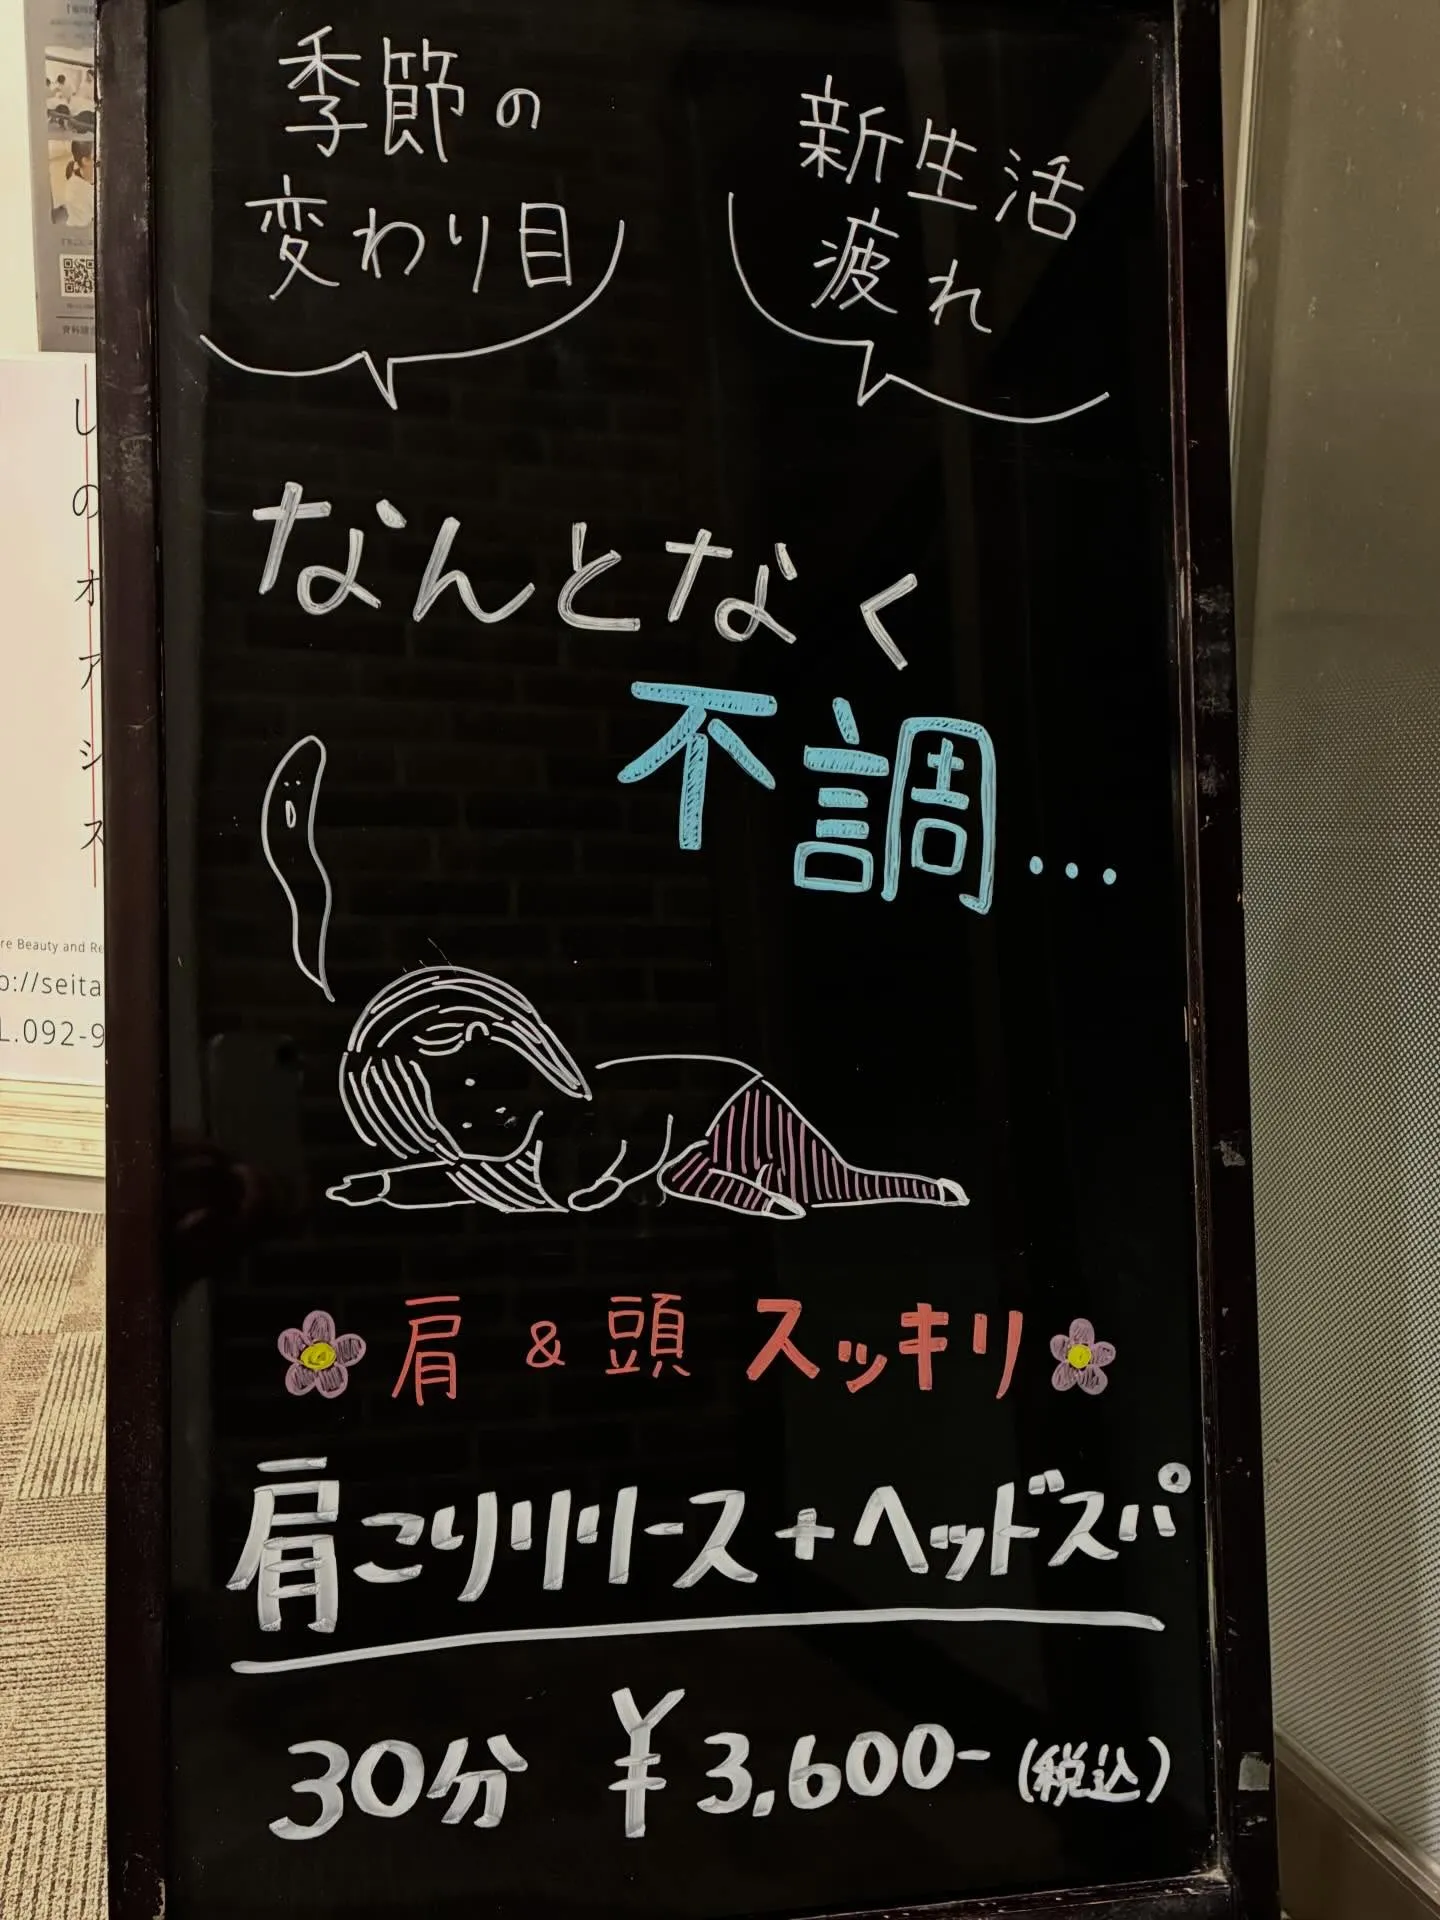 季節の
変わり目
新生活
疲れ
なんとなく
不調...
肩 & 頭 スッキリ
肩こりリリース+ヘッドスパ
30分 ¥3,600-(税込)
しのオアシス
re Beauty and Re
p://seita
L.092-9